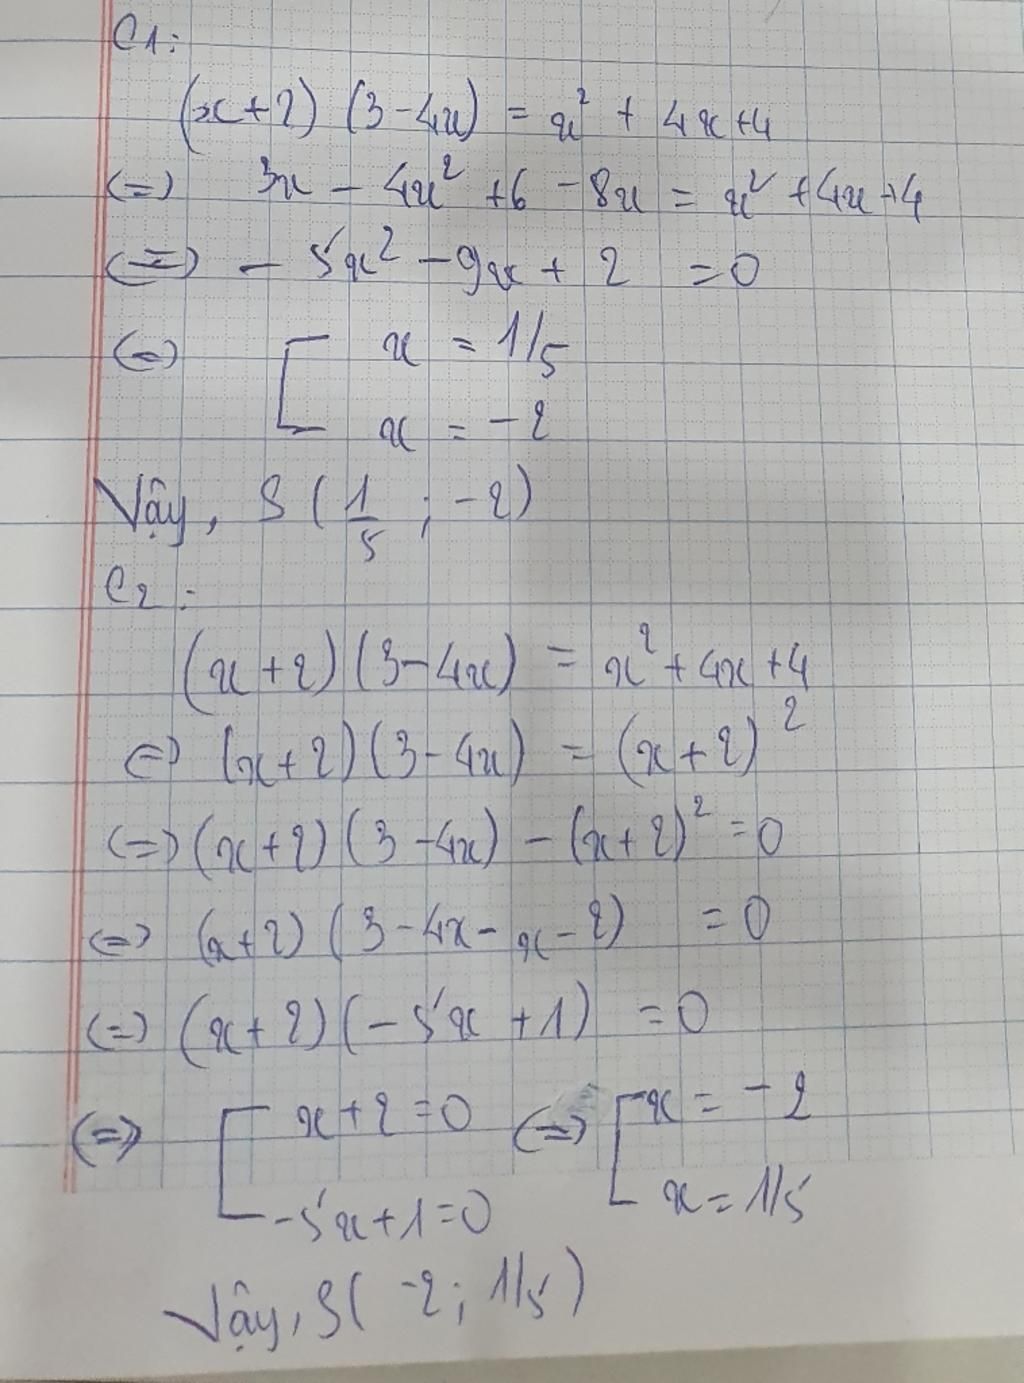 C1:
(x+2) (3-4x) = x² + 4x+4
(=) 3x - 4x² +6 - 8x = x² +4x+4
(=) - 5x² - 9x + 2 = 0
(=) [ x = 1/5
x = -2
Vậy, S ( 1/5 ; -2)
C2:
(x+2)(3-4x) = x²+4x+4
(=) (x+2)(3-4x) = (x+2)²
(=) (x+2)(3-4x) - (x+2)² = 0
(=) (x+2) (3-4x-x-2) = 0
(=) (x+2)(-5x+1) = 0
(=) [ x+2=0 (=) [ x = -2
-5x+1=0 x=1/5
Vậy, S( -2; 1/5)